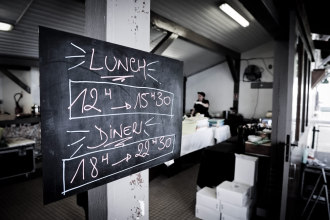 LUNCH
12H → 15H30
DINER
18H → 22H30